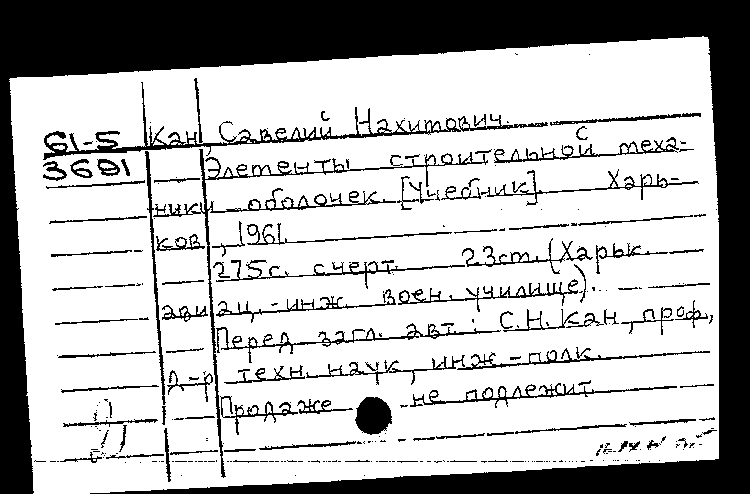 61-5 Кан, Савелий Нахитович.
3691 Элементы строительной меха-
ники оболочек. [Учебник]. Харь-
ков, 1961.
275с. с черт. 23см. (Харьк.
авиац.-инж. воен. училище).
Перед загл. авт.: С.Н. Кан, проф.,
д-р техн. наук, инж.-полк.
Продаже не подлежит